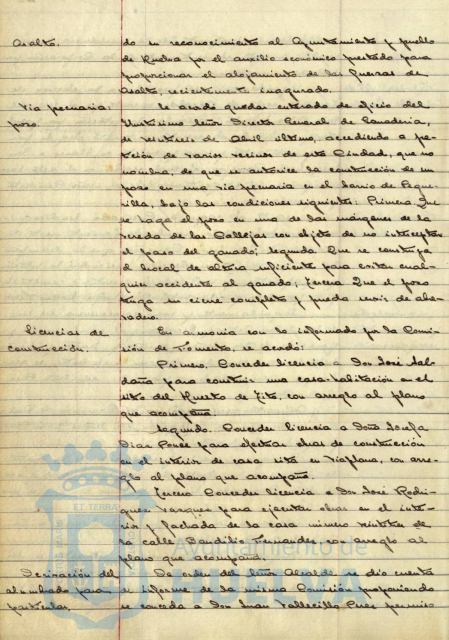 Asalto.
do su reconocimiento al Ayuntamiento y pueblo
de Huelva por el auxilio económico prestado para
proporcionar el alojamiento de las fuerzas de
Asalto, recientemente inaugurado.
Via pecuaria:
pozo.
Se acordó quedar enterado de oficio del
Ilustrísimo Señor Director General de Ganadería,
de veintiseis de Abril último, accediendo a pe-
tición de varios vecinos de esta Ciudad, que no
nombra, de que se autorice la construcción de un
pozo en una vía pecuaria en el barrio de Pegue-
rilla, bajo las condiciones siguientes: Primera Que
se haga el pozo en una de las márgenes de la
vereda de las Callejas con objeto de no interceptar
el paso del ganado; segunda Que se construya
el brocal de altura suficiente para evitar cual-
quier accidente al ganado; Tercera Que el pozo
tenga su cierre completo y pueda servir de abre-
vadero.
Licencias de
construcción.
En armonía con lo informado por la Comi-
sión de Fomento, se acordó:
Primero. Conceder licencia a Don José Sal-
daña para construir una casa-habitación en el
sitio del Huerto de Tito, con arreglo al plano
que acompaña.
Segundo. Conceder licencia a Doña Josefa
Diaz Ponce para efectuar obras de construcción
en el interior de casa sita en Viaplana, con arre-
glo al plano que acompaña.
Tercera Conceder licencia a Don José Rodri-
guez Vazquez para ejecutar obras en el inte-
rior y fachada de la casa número veintitres de
la calle Baudilio Fernandez, con arreglo al
plano que acompaña.
Derivación del
alumbrado para
particular.
De orden del Señor Alcalde se dio cuenta
de informe de la misma Comisión proponiendo
se conceda a Don Juan Vallecillo Pérez permiso
ET TERRÆ
Ayuntamiento de